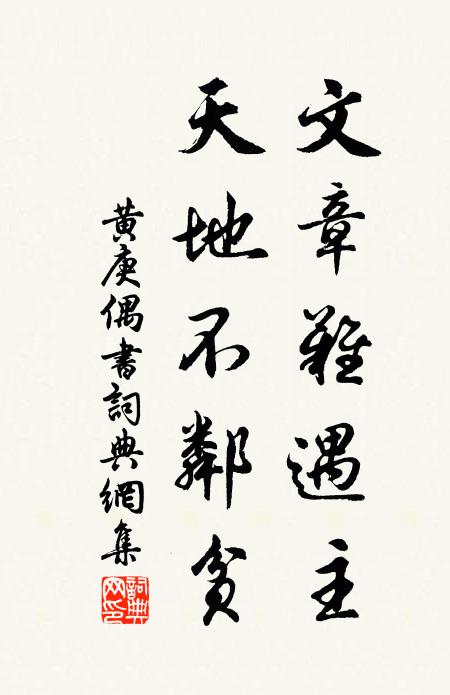 文章難遇主
天地不鄰貧
黄庚偶書詞典網集
詞典网印